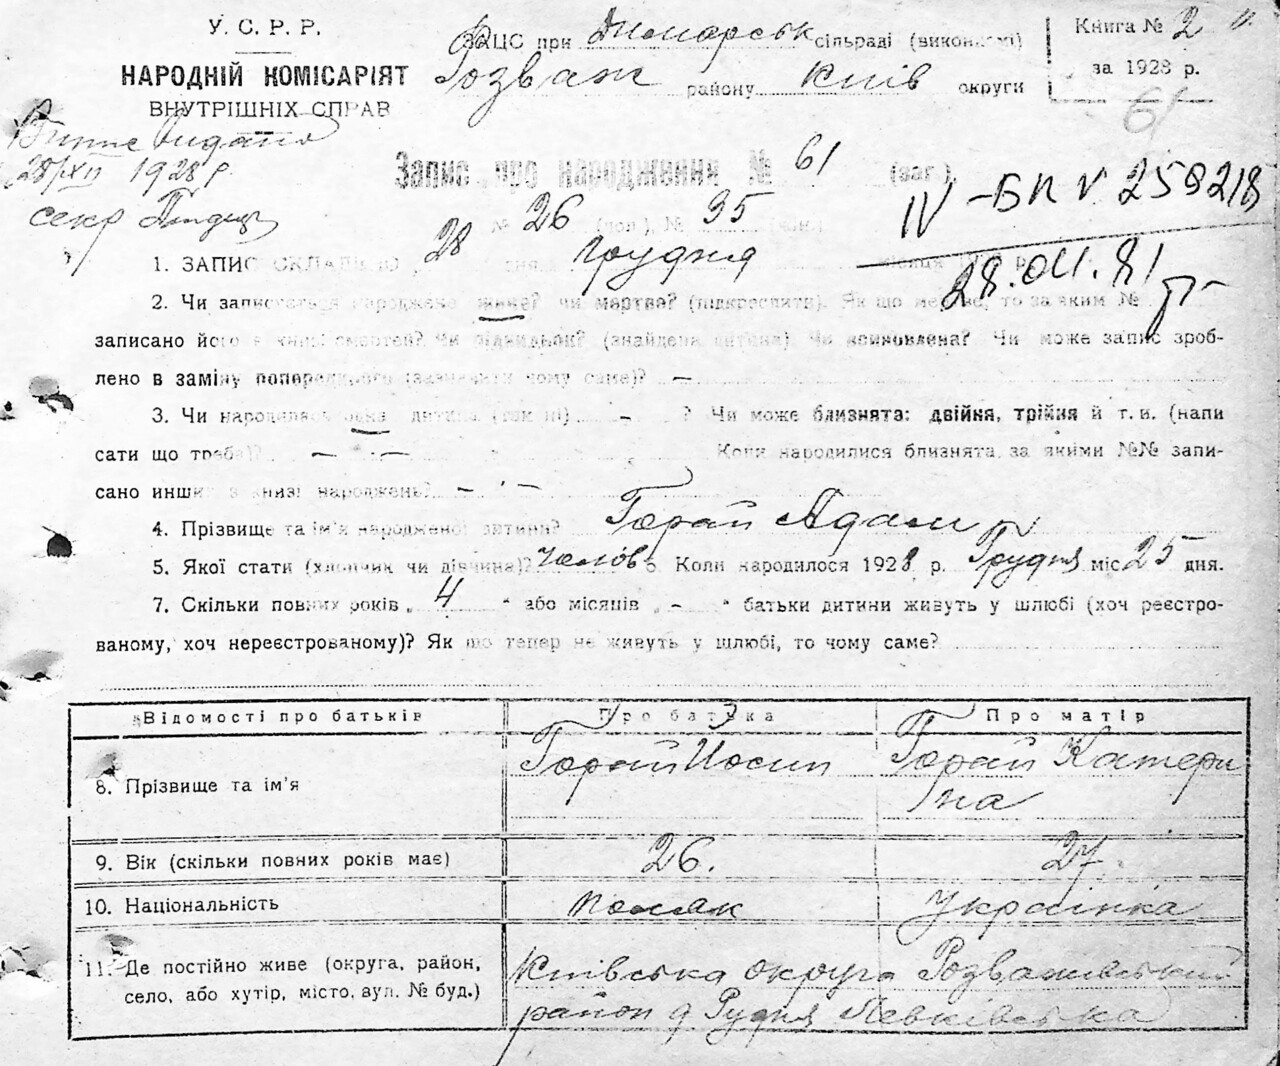 У. С. Р. Р.
НАРОДНІЙ КОМІСАРІЯТ
ВНУТРІШНІХ СПРАВ
ЗАЦС при Димарськ сільраді (виконкомі)
Розваж району Київ округи
Книга № 2
за 1928 р.
61
Видано
28/XII 1928 р.
секр
Запис про народження № 61 (заг.)
№ 26 (пол.), № 35
IV-БК № 258218
28.04.81
1. ЗАПИС СКЛАДЕНО 28 дня грудня місяця 192 р.
2. Чи записується народжене живе? чи мертве? (підкреслити). Як що мертве, то за яким №
записано його в книзі смертей? Чи підкидьок? (знайдена дитина) Чи вриновлена? Чи може запис зроб-
лено в заміну попереднього (зазначити чому саме)? —
3. Чи народилась одна дитина (так ні) - ? Чи може близнята: двійня, трійня й т. и. (напи
сати що треба)? — · — Коли народилися близнята за якими №№ запи-
сано инших в книзі народжень? — · —
4. Прізвище та ім'я народженої дитини? Горай Адам
5. Якої стати (хлопчик чи дівчина)? Чолов 6. Коли народилося 1928 р. Грудня міс 25 дня.
7. Скільки повних років „ 4 " або місяців „ - " батьки дитини живуть у шлюбі (хоч реєстро-
ваному, хоч нереєстрованому)? Як що тепер не живуть у шлюбі, то чому саме?
Відомості про батьків Про батька Про матір
8. Прізвище та ім'я Горай Йосип Горай Катери
на
9. Вік (скільки повних років має) 26. 27.
10. Національність поляк Українка
11. Де постійно живе (округа, район,
село, або хутір, місто, вул. № буд.)
Київська округа Розважівський
район д Рудня Левківська